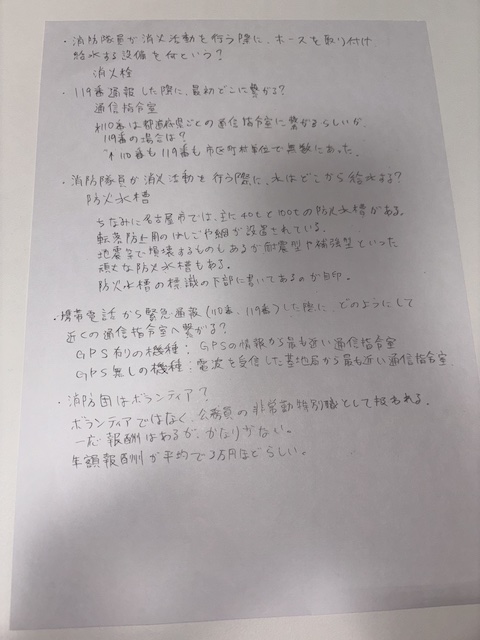 ・消防隊員が消火活動を行う際に、ホースを取り付け
給水する設備を何という?
消火栓
・119番通報した際に、最初どこに繋がる?
通信指令室
※110番は都道府県ごとの通信指令室に繋がるらしいが、
119番の場合は?
110番も119番も市区町村単位で無数にあった。
・消防隊員が消火活動を行う際に、水はどこから給水する?
防火水槽
ちなみに名古屋市では、主に40tと100tの防火水槽がある。
転落防止用のはしごや網が設置されている。
地震等で損壊するものもあるが耐震型や補強型といった
頑丈な防火水槽もある。
防火水槽の標識の下部に書いてあるのが目印。
・携帯電話から緊急通報(110番、119番)した際に、どのようにして
近くの通信指令室へ繋がる?
GPS有りの機種:GPSの情報から最も近い通信指令室
GPS無しの機種:電波を受信した基地局から最も近い通信指令室
・消防団はボランティア?
ボランティアではなく、公務員の非常勤特別職として扱われる。
一応報酬はあるが、かなり少ない。
年額報酬が平均で2万円ほどらしい。